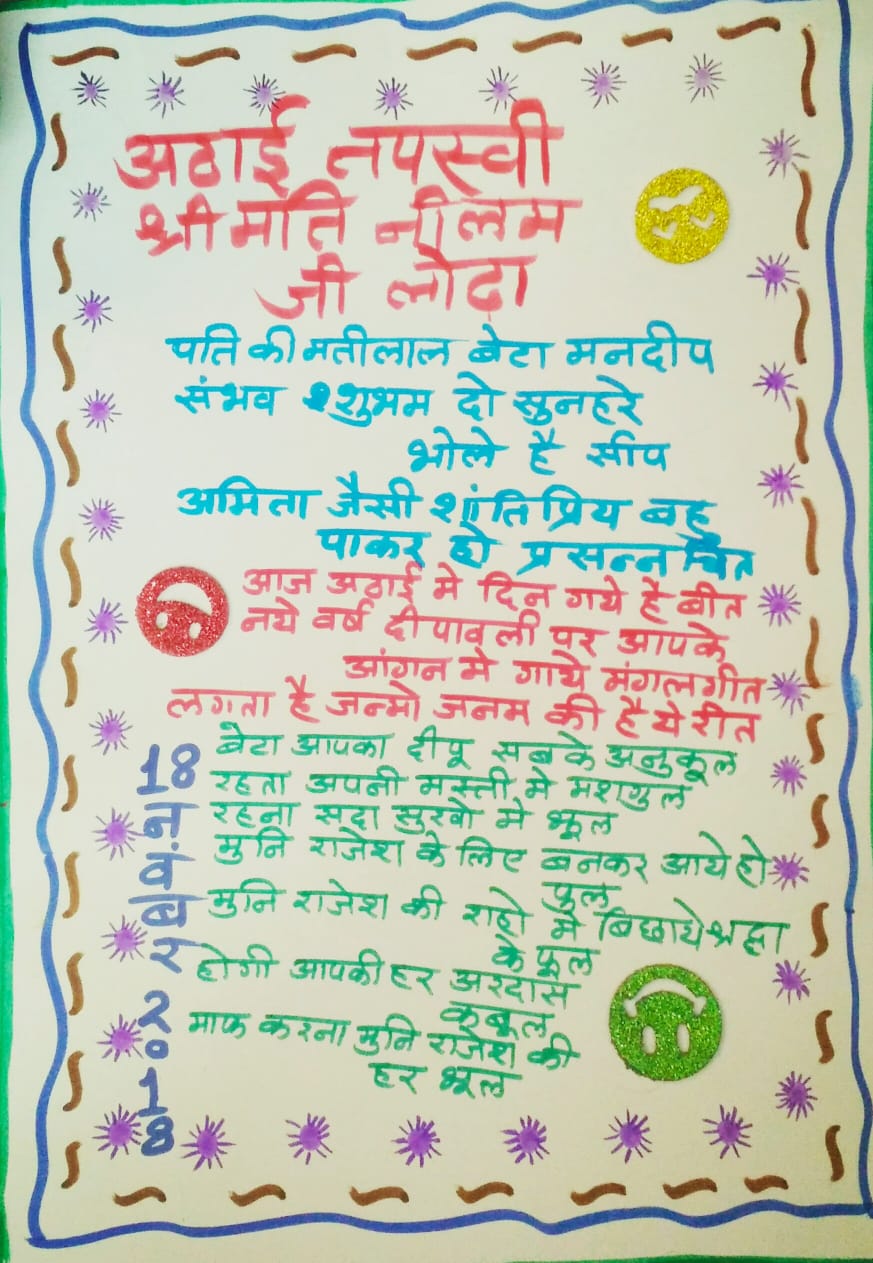 अठाई तपस्वी
श्रीमति नीलम
जी लोढा
पति की मतीलाल बेटा मनदीप
संभव शुभम दो सुनहरे
भोले है सीप
अमिता जैसी शांति प्रिय बहू
पाकर हो प्रसन्नचित
आज अठाई मे दिन गये है बीत
नये वर्ष दीपावली पर आपके
आंगन मे गाये मंगलगीत
लगता है जन्मो जनम की है ये रीत
बेटा आपका दीपू सबके अनुकूल
रहता अपनी मस्ती मे मशगुल
रहना सदा सुखो मे झूल
मुनि राजेश के लिए बनकर आये हो
फुल
मुनि राजेश की राहो मे बिछाये श्रद्धा
के फूल
होगी आपकी हर अरदास
कबूल
माफ करना मुनि राजेश की
हर भूल
18
न
वं
ब
र
2
0
1
8